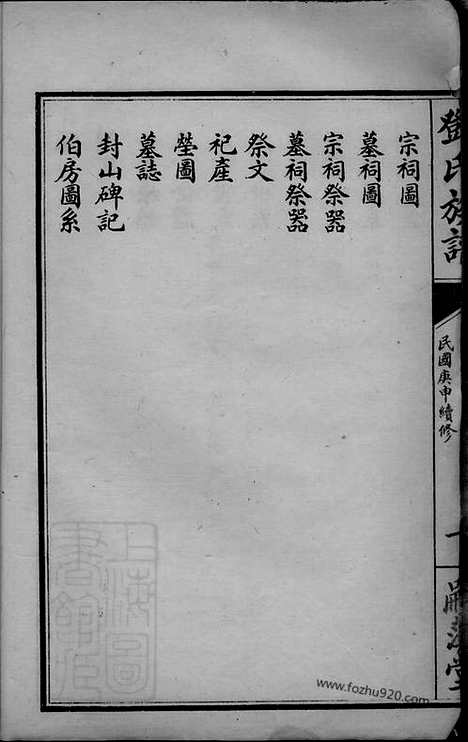 鄧氏族譜
民國庚申續修
一
宗祠圖
墓祠圖
宗祠祭器
墓祠祭器
祭文
祀產
塋圖
墓誌
封山碑記
伯房圖系
上海圖書館藏
www.fozhu920.com